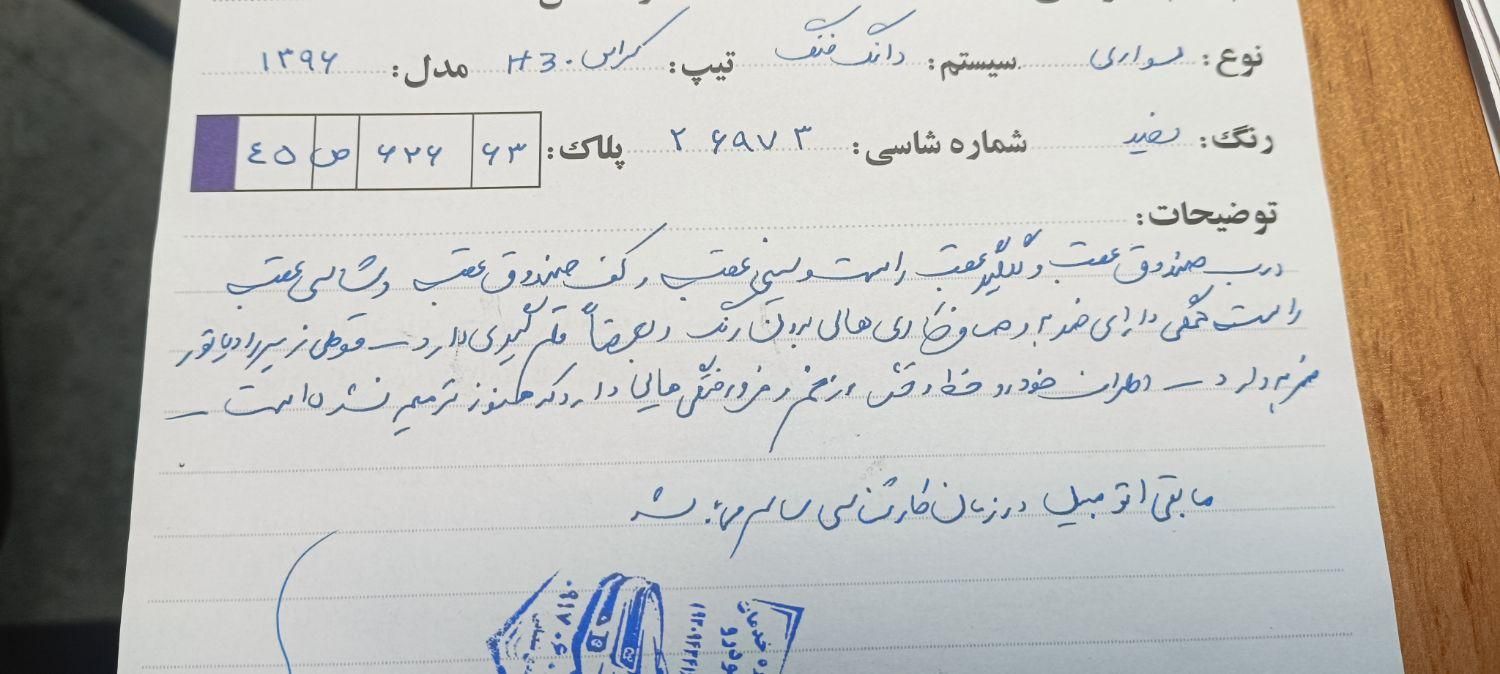 نوع: سواری سیستم: دانگ فنگ تیپ: کراس H30 مدل: ۱۳۹۶
رنگ: سفید شماره شاسی: ۲۶۹۷۳ پلاک: ۶۳ ۶۲۶ ص ۴۵
توضیحات:
درب صندوق عقب و گلگیر عقب راست و سینی عقب و کف صندوق عقب و شاسی عقب
راست همگی دارای ضربه و صافکاری های بدون رنگ و بعضاً قلم گیری دارد _ قوطی زیر رادیاتور
ضربه دارد _ اطراف خودرو خط و خش و زخم و فرورفتگی هایی دارد که هنوز ترمیم نشده است _
مابقی اتومبیل در زمان کارشناسی سالم میباشد